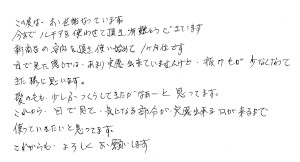 この度は、お世話になっています
今まで ルチアを使わせて頂き有難うございます
新商品の案内を頂き使い始めて1ヶ月位です
目で見た感じでは、あまり実感出来ていませんけど、抜け毛が少なくなって
きた様に思います。
髪の毛も、少しふっくらしてきたかなぁーと思ってます。
これから、目で見て、気になる部分が、実感出来る日が来るまで
使っていきたいと思ってます。
これからも、よろしくお願いします